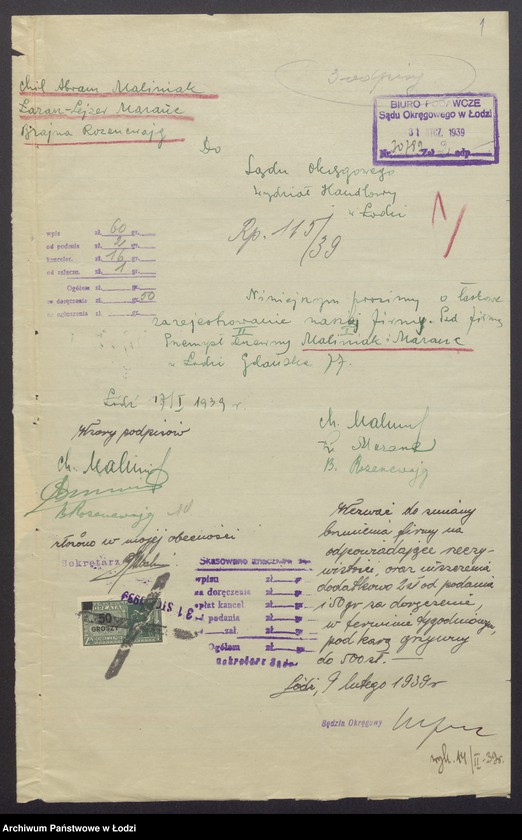 1
3 odpisy
Chil Abram Maliniak
Lazar-Lejzer Maranc
Brajna Rozencwajg
BIURO PODAWCZE
Sądu Okręgowego w Łodzi
31 STYCZ. 1939
Do
Sądu Okręgowego
Wydział Handlowy
w Łodzi
Rp. 115/39
wpis zł. 60 gr.
od podania zł. 2 gr.
kancelar. zł. 16 gr.
od załączn. zł. 1 gr.
Ogółem zł. gr.
za doręczenie zł. gr. 50
za ogłoszenie zł. gr.
Niniejszym prosimy o łaskawe
zarejestrowanie naszej firmy. Pod firmą
Przemysł Maliniak i Maranc
w Łodzi Gdańska 77.
Łódź 17/I 1939 r.
Wzory podpisów
Ch. Malin
B. Rozencwajg
Ch. Malin
Maranc
B. Rozencwajg
złożono w mojej obecności
Sekretarz
Skasowano znaczków
wpisu zł. gr.
za doręczenie zł. gr.
opłat kancel zł. gr.
podania zł. gr.
zał. zł. gr.
Ogółem zł. gr.
Sekretarz Sądu
OPŁATA
50
GROSZY
31 STYCZ 1939
Wezwać do zmiany
brzmienia firmy na
odpowiadające rzeczy-
wistości, oraz uiszczenia
dodatkowo 2 zł od podania
i 50 gr za doręczenie,
w terminie tygodniowym,
pod karą grzywny
do 500 zł. —
Łódź, 9 lutego 1939 r
Sędzia Okręgowy
wyk. 14/II 39 r.
Archiwum Państwowe w Łodzi